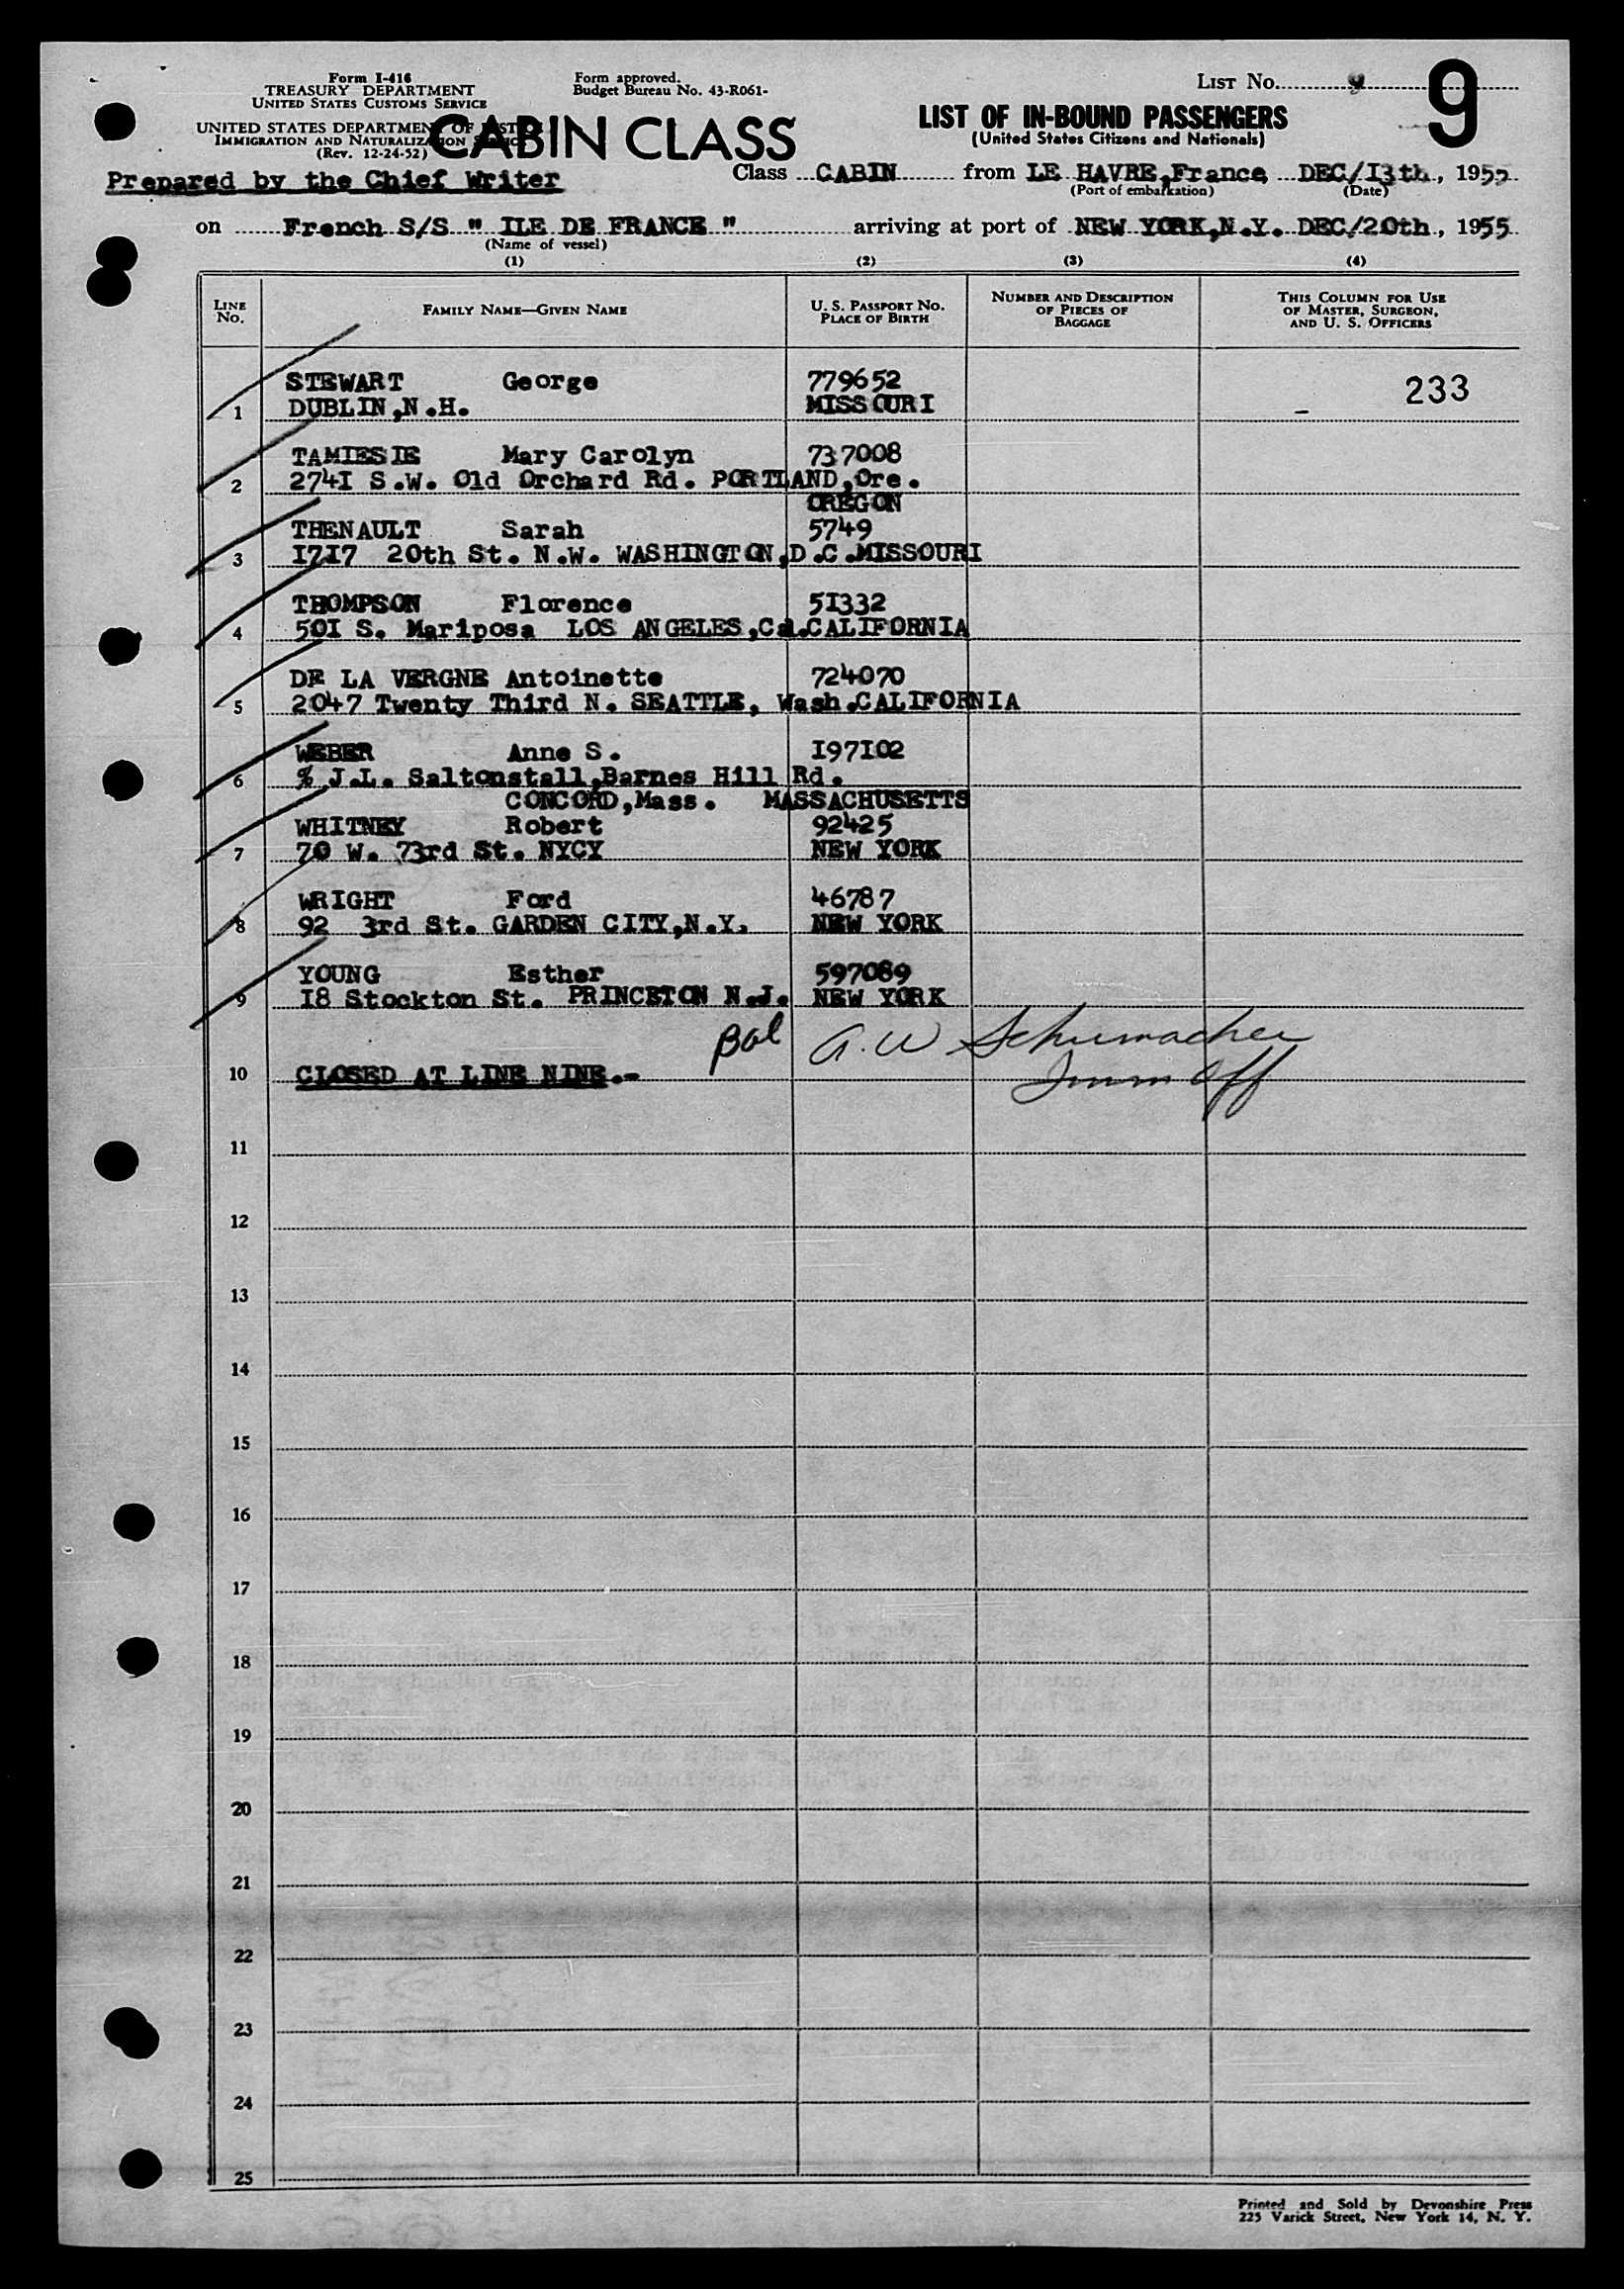 Form I-416
TREASURY DEPARTMENT
UNITED STATES CUSTOMS SERVICE
UNITED STATES DEPARTMENT OF JUSTICE
IMMIGRATION AND NATURALIZATION SERVICE
(Rev. 12-24-52)
Form approved.
Budget Bureau No. 43-R061-
CABIN CLASS
LIST No. 9
9
LIST OF IN-BOUND PASSENGERS
(United States Citizens and Nationals)
Prepared by the Chief Writer
Class CABIN from LE HAVRE,France DEC/I3th, 1955
(Port of embarkation) (Date)
on French S/S " ILE DE FRANCE " arriving at port of NEW YORK,N.Y. DEC/20th, 1955
(Name of vessel)
(1) (2) (3) (4)
LINE No. FAMILY NAME—GIVEN NAME U. S. PASSPORT No. PLACE OF BIRTH NUMBER AND DESCRIPTION OF PIECES OF BAGGAGE THIS COLUMN FOR USE OF MASTER, SURGEON, AND U. S. OFFICERS
STEWART George 779652 233
1 DUBLIN,N.H. MISSOURI -
TAMIESIE Mary Carolyn 737008
2 274I S.W. Old Orchard Rd. PORTLAND,Ore.
OREGON
THENAULT Sarah 5749
3 I7I7 20th St. N.W. WASHINGTON,D.C.MISSOURI
THOMPSON Florence 5I332
4 50I S. Mariposa LOS ANGELES,Cal.CALIFORNIA
DE LA VERGNE Antoinette 724070
5 2047 Twenty Third N. SEATTLE, Wash.CALIFORNIA
WEBER Anne S. I97I02
6 % J.L. Saltonstall,Barnes Hill Rd.
CONCORD,Mass. MASSACHUSETTS
WHITNEY Robert 92425
7 70 W. 73rd St. NYCY NEW YORK
WRIGHT Ford 46787
8 92 3rd St. GARDEN CITY,N.Y. NEW YORK
YOUNG Esther 597089
9 I8 Stockton St. PRINCETON N.J. NEW YORK
Bal A. W Schumacher
10 CLOSED AT LINE NINE.- Imm Off
11
12
13
14
15
16
17
18
19
20
21
22
23
24
25
Printed and Sold by Devonshire Press
225 Varick Street, New York 14, N. Y.